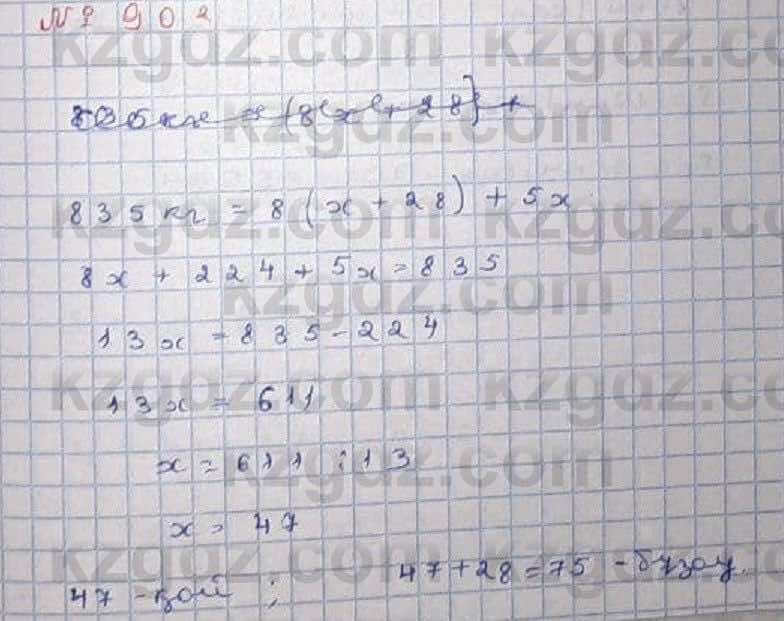 № 902
835кг = (8(x + 28) +
835 кг = 8 (x + 28) + 5x
8x + 224 + 5x = 835
13x = 835 - 224
13x = 611
x = 611 : 13
x = 47
47 - қой ; 47 + 28 = 75 - бұзау.
kzgdz.com kzgdz.com
kzgdz.com
kzgdz.com kzgdz.com
kzgdz.com
kzgdz.com kzgdz.com
kzgdz.com
kzgdz.com kzgdz.com